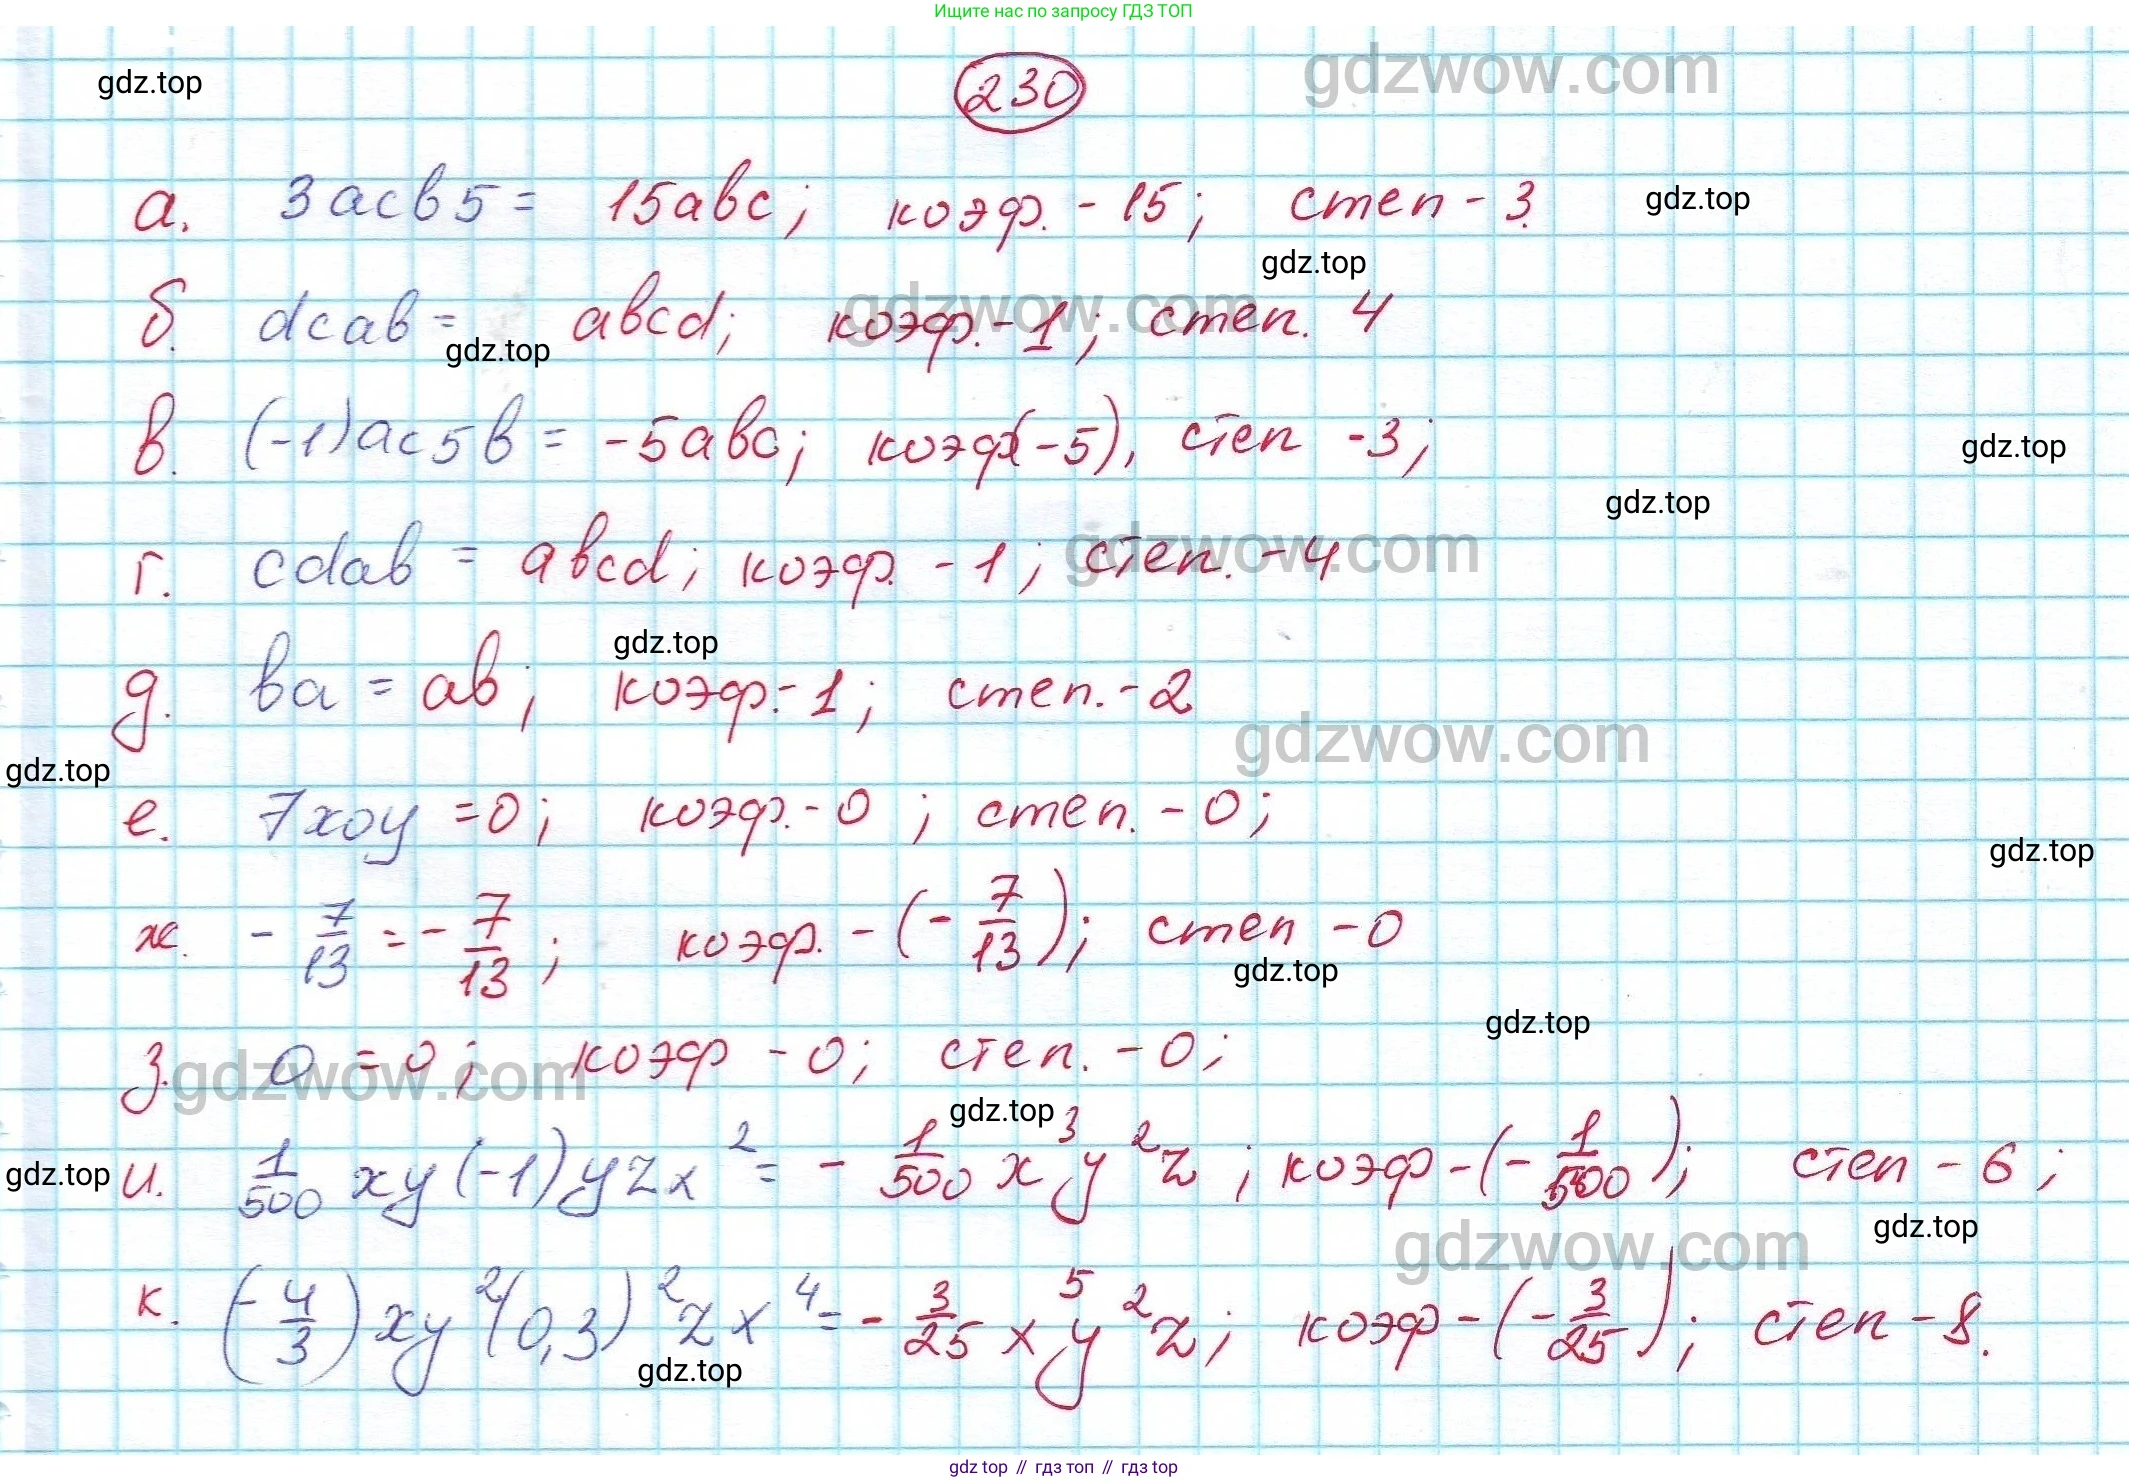 Ищите нас по запросу ГДЗ ТОП
230
gdz.top
gdzwow.com
а. 3acb5 = 15abc; коэф. - 15; степ - 3.
gdz.top
gdz.top
б. dcab = abcd; коэф. - 1; степ. 4
gdzwow.com
gdz.top
в. (-1)ac5b = -5abc; коэф(-5), степ -3;
gdz.top
gdz.top
г. cdab = abcd; коэф. - 1; степ. - 4
gdzwow.com
gdz.top
д. ba = ab; коэф. - 1; степ. - 2
gdzwow.com
gdz.top
е. 7x0y = 0; коэф. - 0; степ. - 0;
gdz.top
ж. - 7/13 = - 7/13; коэф. - (- 7/13); степ - 0
gdz.top
gdz.top
з. 0 = 0; коэф - 0; степ. - 0;
gdzwow.com
gdz.top
и. 1/500 xy(-1)yzx² = - 1/500 x³y²z; коэф - (- 1/500); степ - 6;
gdz.top
gdz.top
gdzwow.com
к. (- 4/3)xy²(0,3)²zx⁴ = - 3/25 x⁵y²z; коэф - (- 3/25); степ - 8.
gdz.top
gdz top // гдз топ // гдз top